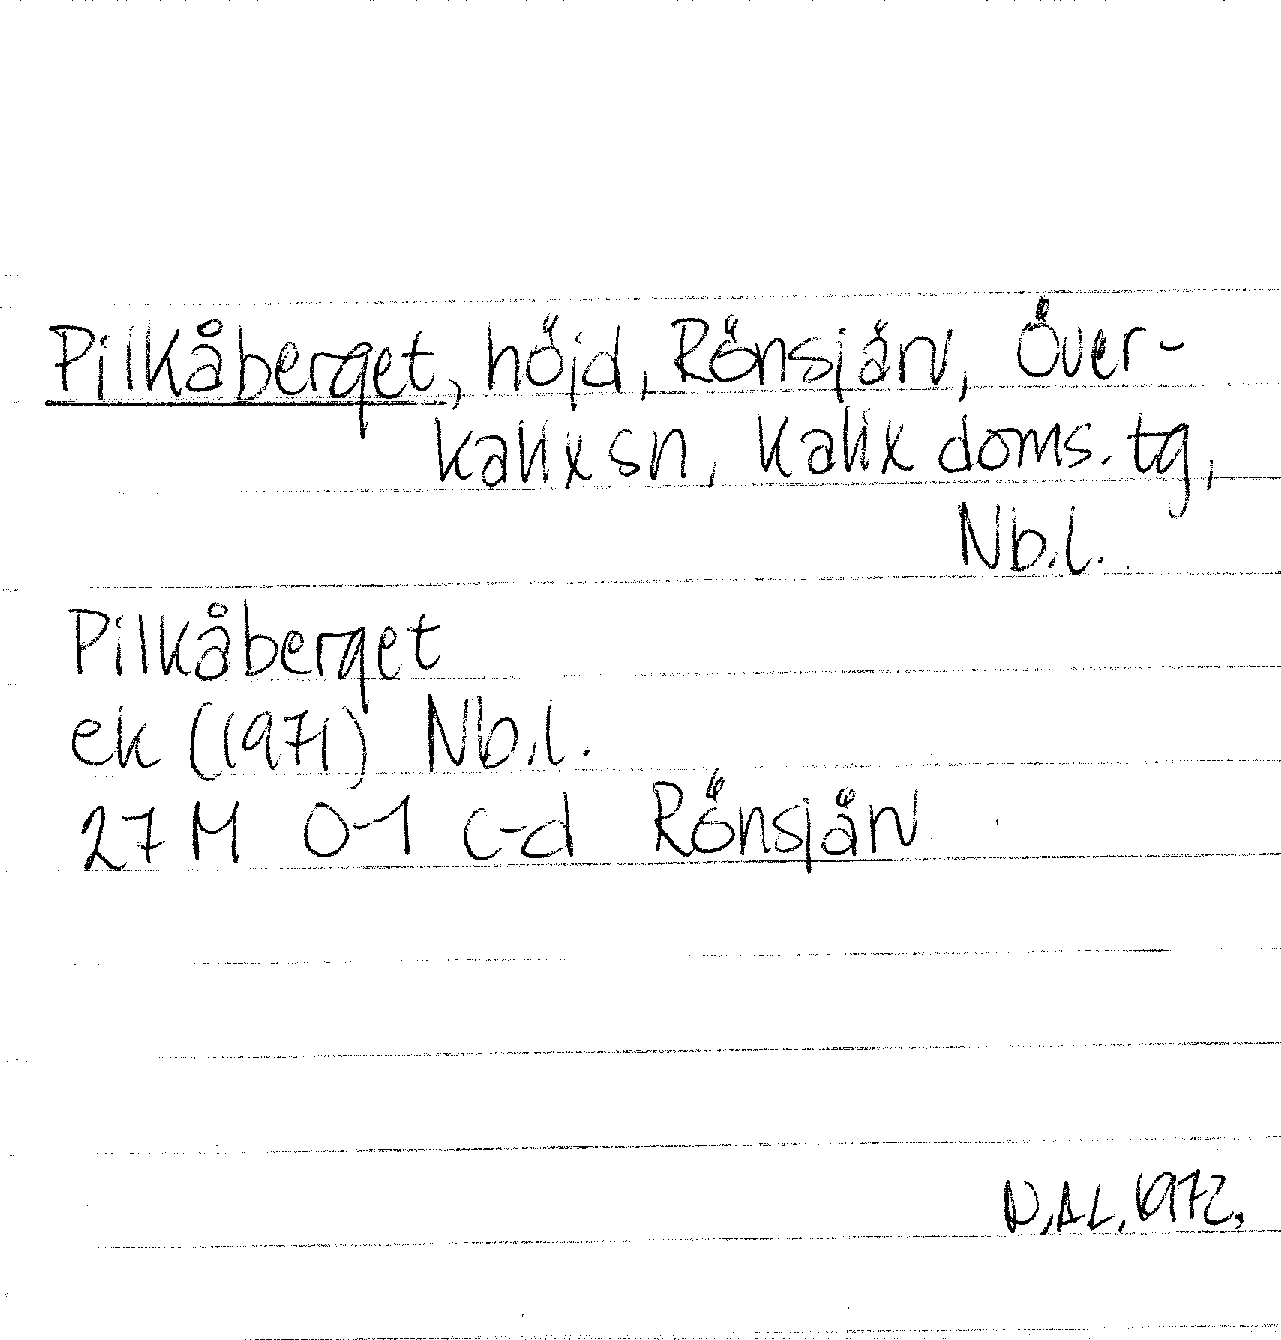 Pilkåberget, höjd, Rönsjärv, Över-
kalix sn, Kalix doms. tg,
Nb.l.
Pilkåberget
ek (1971) Nb.l.
27 M 0-1 c-d Rönsjärv
N.AL. 1972.